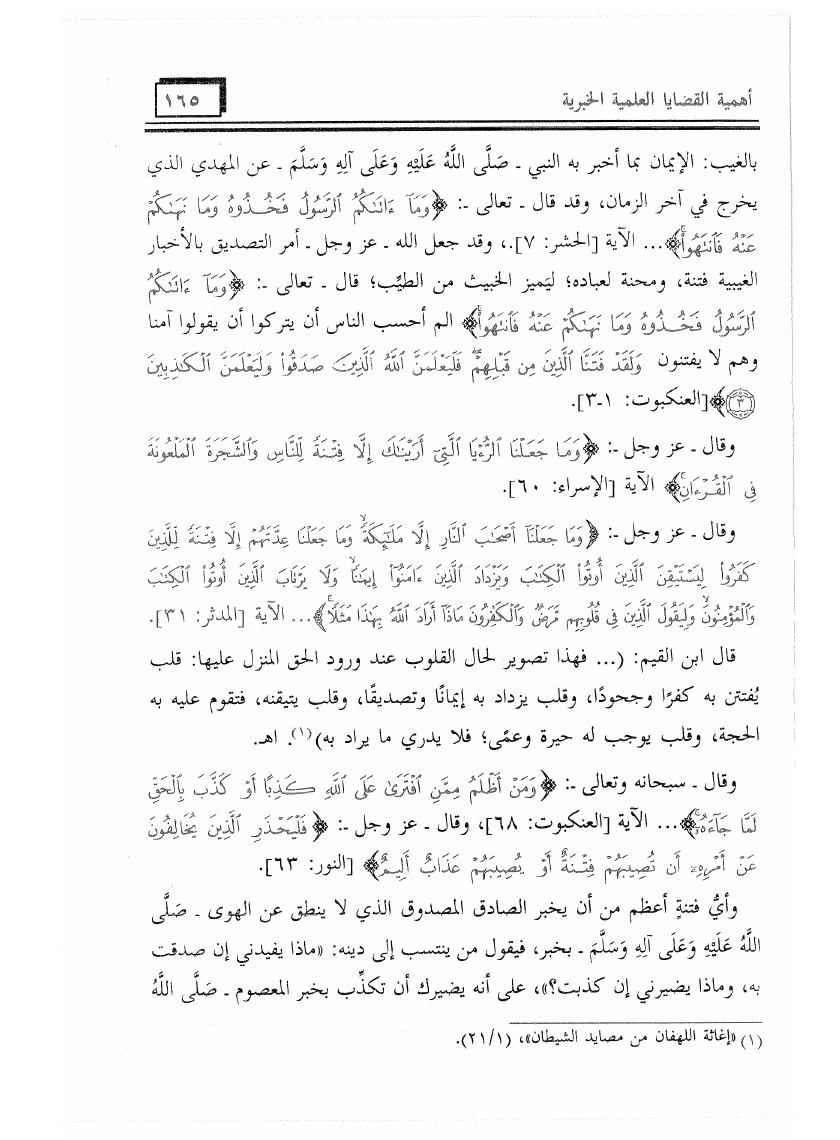 أهمية القضايا العلمية الخبرية
١٦٥
بالغيب: الإيمان بما أخبر به النبي ـ صَلَّى اللَّهُ عَلَيْهِ وَعَلَى آلِهِ وَسَلَّمَ ـ عن المهدي الذي
يخرج في آخر الزمان، وقد قال ـ تعالى ـ: ﴿وَمَآ ءَاتَىٰكُمُ ٱلرَّسُولُ فَخُذُوهُ وَمَا نَهَىٰكُمْ
عَنْهُ فَٱنتَهُوا۟ۚ﴾... الآية [الحشر: ٧].، وقد جعل الله ـ عز وجل ـ أمر التصديق بالأخبار
الغيبية فتنة، ومحنة لعباده؛ ليَميز الخبيث من الطيِّب؛ قال ـ تعالى ـ: ﴿وَمَآ ءَاتَىٰكُمُ
ٱلرَّسُولُ فَخُذُوهُ وَمَا نَهَىٰكُمْ عَنْهُ فَٱنتَهُوا۟ۚ﴾ الم أحسب الناس أن يتركوا أن يقولوا آمنا
وهم لا يفتنون وَلَقَدْ فَتَنَّا ٱلَّذِينَ مِن قَبْلِهِمْۖ فَلَيَعْلَمَنَّ ٱللَّهُ ٱلَّذِينَ صَدَقُوا۟ وَلَيَعْلَمَنَّ ٱلْكَٰذِبِينَ
٣﴾[العنكبوت: ١ـ٣].
وقال ـ عز وجل ـ: ﴿وَمَا جَعَلْنَا ٱلرُّءْيَا ٱلَّتِىٓ أَرَيْنَٰكَ إِلَّا فِتْنَةً لِّلنَّاسِ وَٱلشَّجَرَةَ ٱلْمَلْعُونَةَ
فِى ٱلْقُرْءَانِۚ﴾ الآية [الإسراء: ٦٠].
وقال ـ عز وجل ـ: ﴿وَمَا جَعَلْنَآ أَصْحَٰبَ ٱلنَّارِ إِلَّا مَلَٰٓئِكَةًۙ وَمَا جَعَلْنَا عِدَّتَهُمْ إِلَّا فِتْنَةً لِّلَّذِينَ
كَفَرُوا۟ لِيَسْتَيْقِنَ ٱلَّذِينَ أُوتُوا۟ ٱلْكِتَٰبَ وَيَزْدَادَ ٱلَّذِينَ ءَامَنُوٓا۟ إِيمَٰنًاۙ وَلَا يَرْتَابَ ٱلَّذِينَ أُوتُوا۟ ٱلْكِتَٰبَ
وَٱلْمُؤْمِنُونَۙ وَلِيَقُولَ ٱلَّذِينَ فِى قُلُوبِهِم مَّرَضٌ وَٱلْكَٰفِرُونَ مَاذَآ أَرَادَ ٱللَّهُ بِهَٰذَا مَثَلًاۚ﴾... الآية [المدثر: ٣١].
قال ابن القيم: (... فهذا تصوير لحال القلوب عند ورود الحق المنزل عليها: قلب
يُفتتن به كفرًا وجحودًا، وقلب يزداد به إيمانًا وتصديقًا، وقلب يتيقنه، فتقوم عليه به
الحجة، وقلب يوجب له حيرة وعمًى؛ فلا يدري ما يراد به)(١). اهـ.
وقال ـ سبحانه وتعالى ـ: ﴿وَمَنْ أَظْلَمُ مِمَّنِ ٱفْتَرَىٰ عَلَى ٱللَّهِ كَذِبًا أَوْ كَذَّبَ بِٱلْحَقِّ
لَمَّا جَآءَهُۥٓۚ﴾... الآية [العنكبوت: ٦٨]، وقال ـ عز وجل ـ: ﴿فَلْيَحْذَرِ ٱلَّذِينَ يُخَالِفُونَ
عَنْ أَمْرِهِۦٓ أَن تُصِيبَهُمْ فِتْنَةٌ أَوْ يُصِيبَهُمْ عَذَابٌ أَلِيمٌ﴾ [النور: ٦٣].
وأيُّ فتنةٍ أعظم من أن يخبر الصادق المصدوق الذي لا ينطق عن الهوى ـ صَلَّى
اللَّهُ عَلَيْهِ وَعَلَى آلِهِ وَسَلَّمَ ـ بخبر، فيقول من ينتسب إلى دينه: «ماذا يفيدني إن صدقت
به، وماذا يضيرني إن كذبت؟»، على أنه يضيرك أن تكذِّب بخبر المعصوم ـ صَلَّى اللَّهُ
(١) «إغاثة اللهفان من مصايد الشيطان»، (٢١/١).